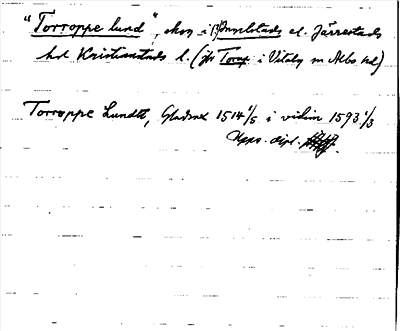 "Torroppe lund", skog i (?) Ingelstads el. Järrestads
hd Kristianstads l. (jfr Torup i Vitaby sn Albo hd)
Torroppe Lundtt, Gladsax 1514 1/5 i vidim 1593 1/3
Upps. dipl.